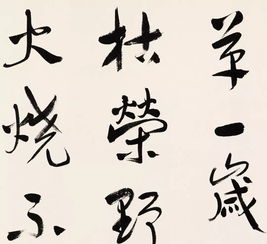 草一歲
枯榮野
火燒不